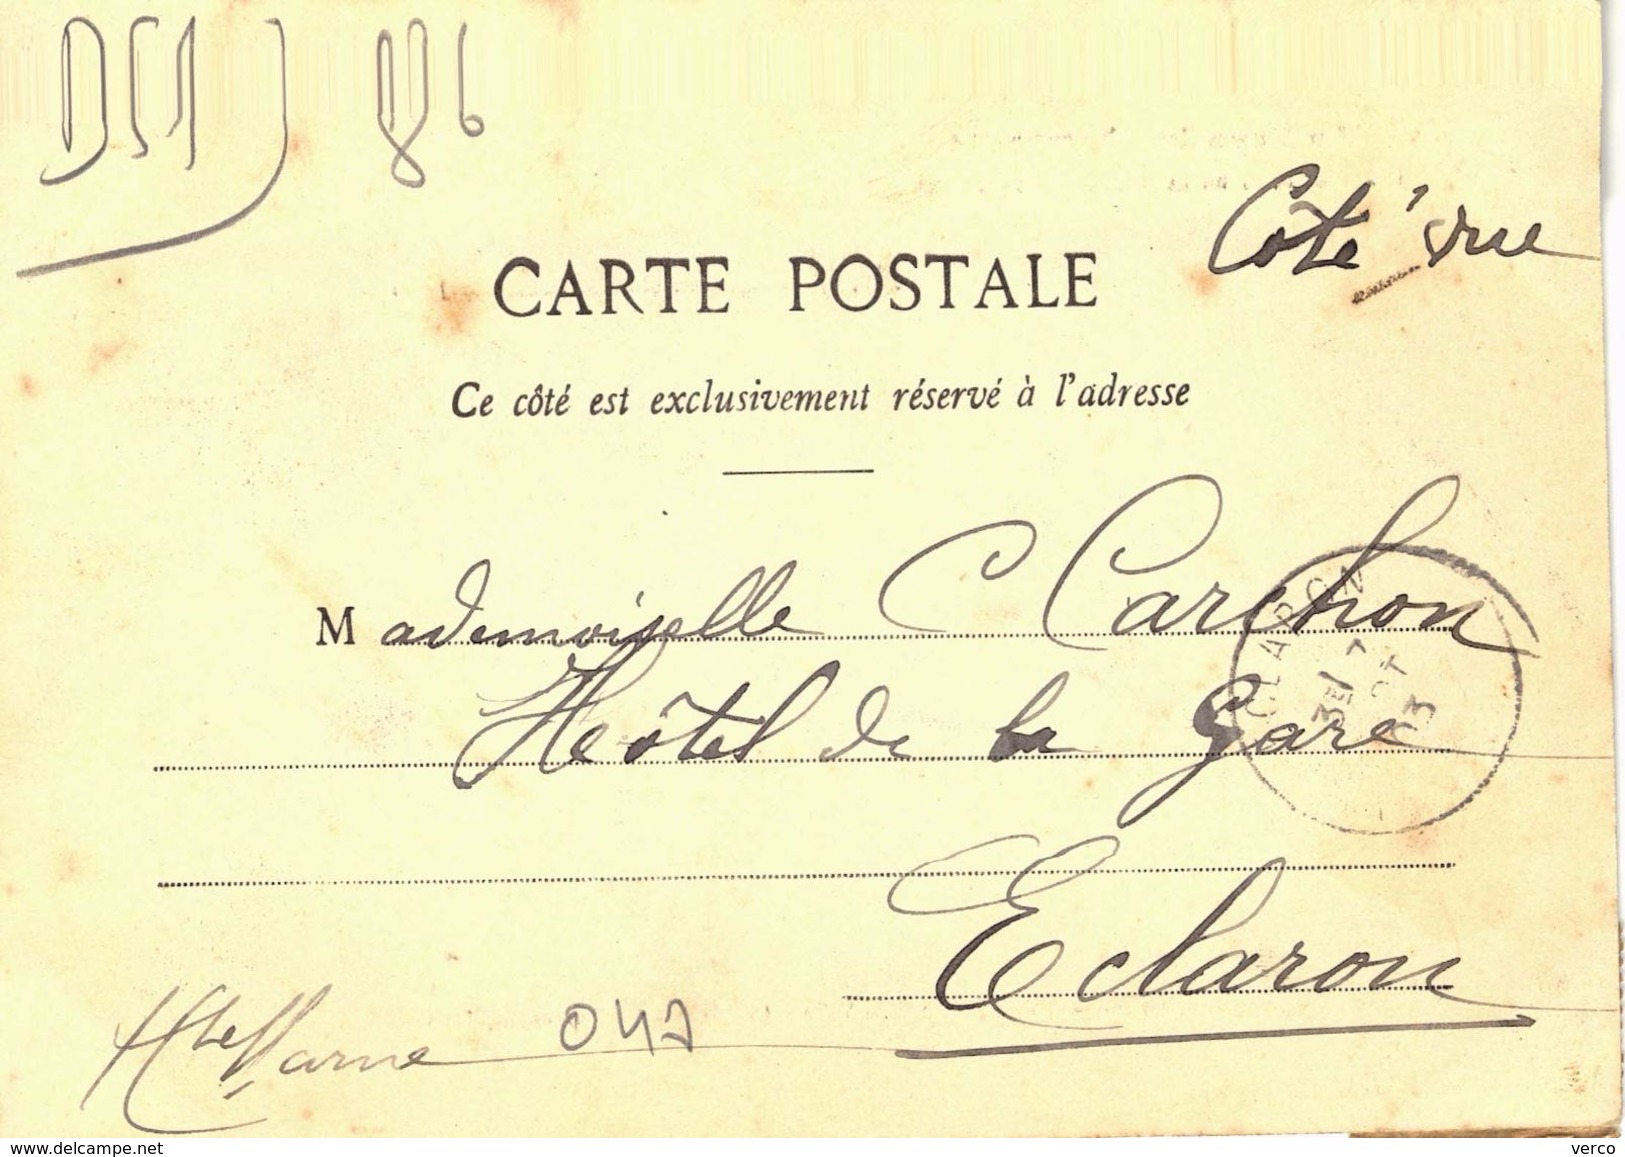 86
Côté vue
CARTE POSTALE
Ce côté est exclusivement réservé à l'adresse
Mademoiselle C Carchon
Hôtel de la Gare
Eclaron
Hte Marne
047
delcampe.net
verco